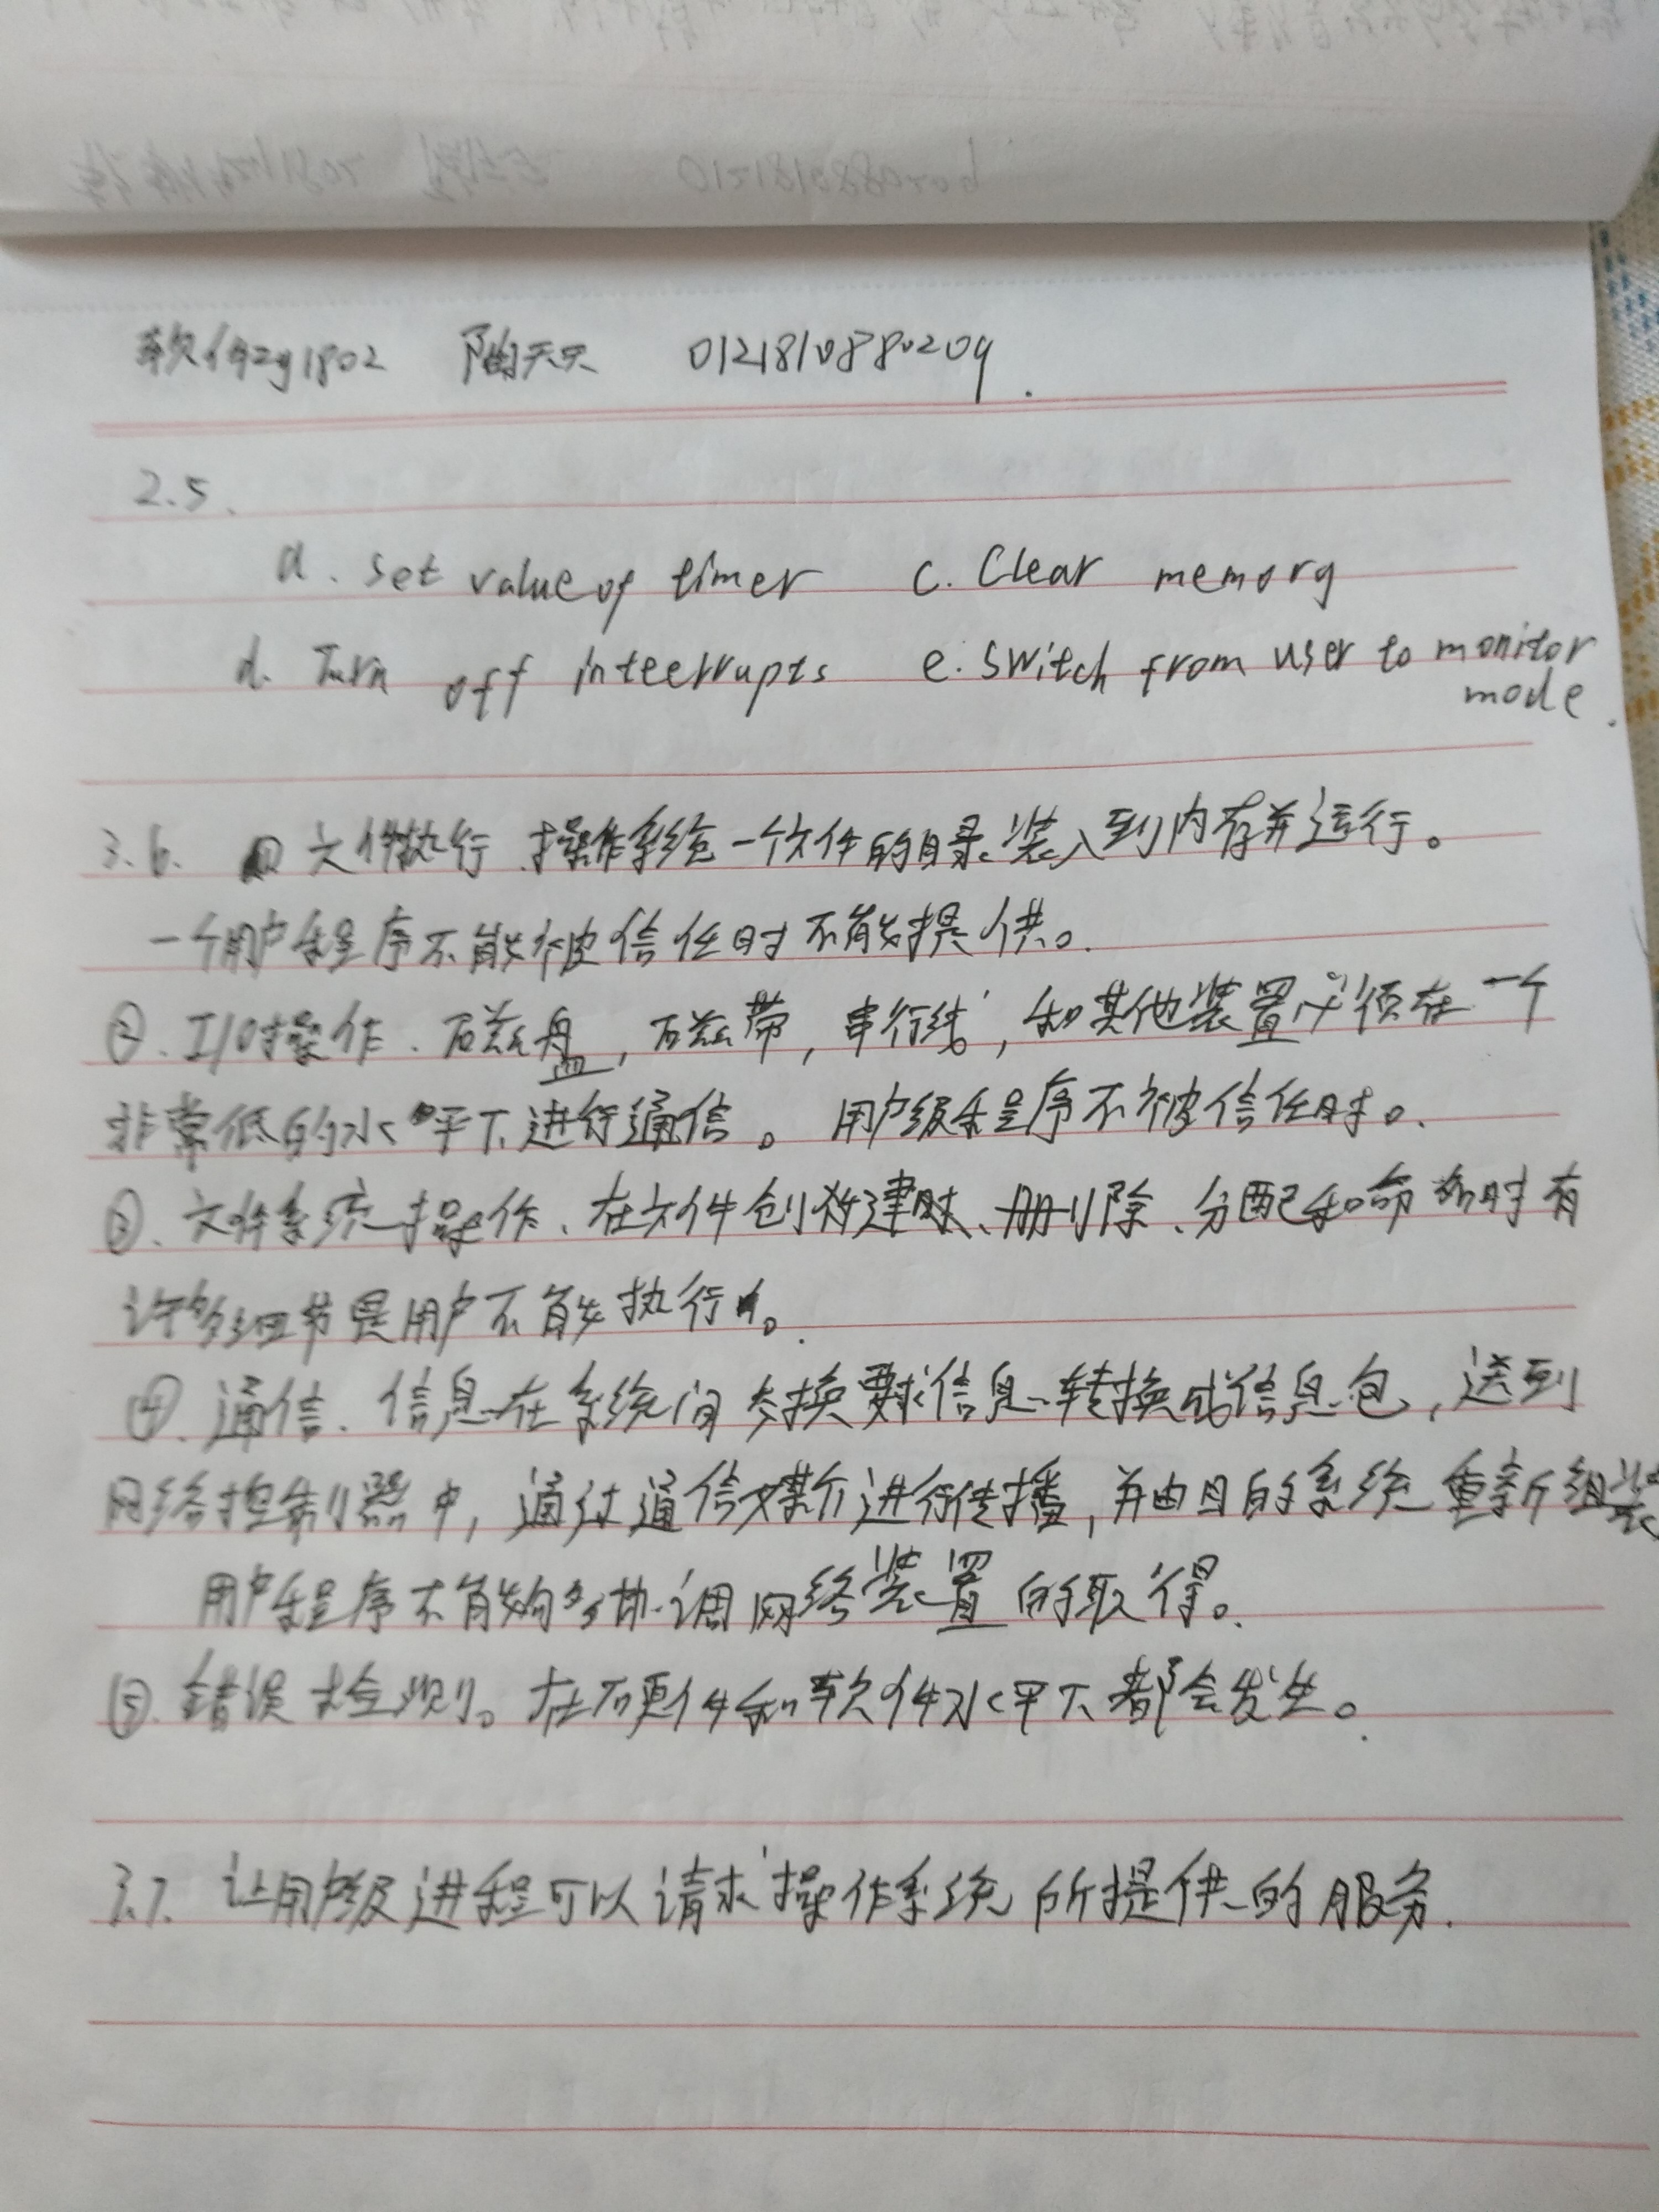 软件zy1802 陶天天 0121810880209.
2.5.
a. set value of timer c. Clear memory
d. Turn off inteerrupts e. Switch from user to monitor
mode.
3.6. 文件执行.操作系统一个文件的目录装入到内存并运行。
一个用户程序不能被信任时不能提供。
②. I/O操作.磁盘,磁带,串行线,和其他装置必须在一个
非常低的水平下进行通信。用户级程序不被信任时。
③. 文件系统操作、在文件创建时、删除、分配和命名时有
许多细节是用户不能执行的。
④. 通信、信息在系统间交换要求信息转换成信息包,送到
网络控制器中,通过通信媒介进行传播,并由目的系统重新组装
用户程序不能够协调网络装置的取得。
⑤. 错误检测。在硬件和软件水平下都会发生。
3.7. 让用户级进程可以请求操作系统所提供的服务.